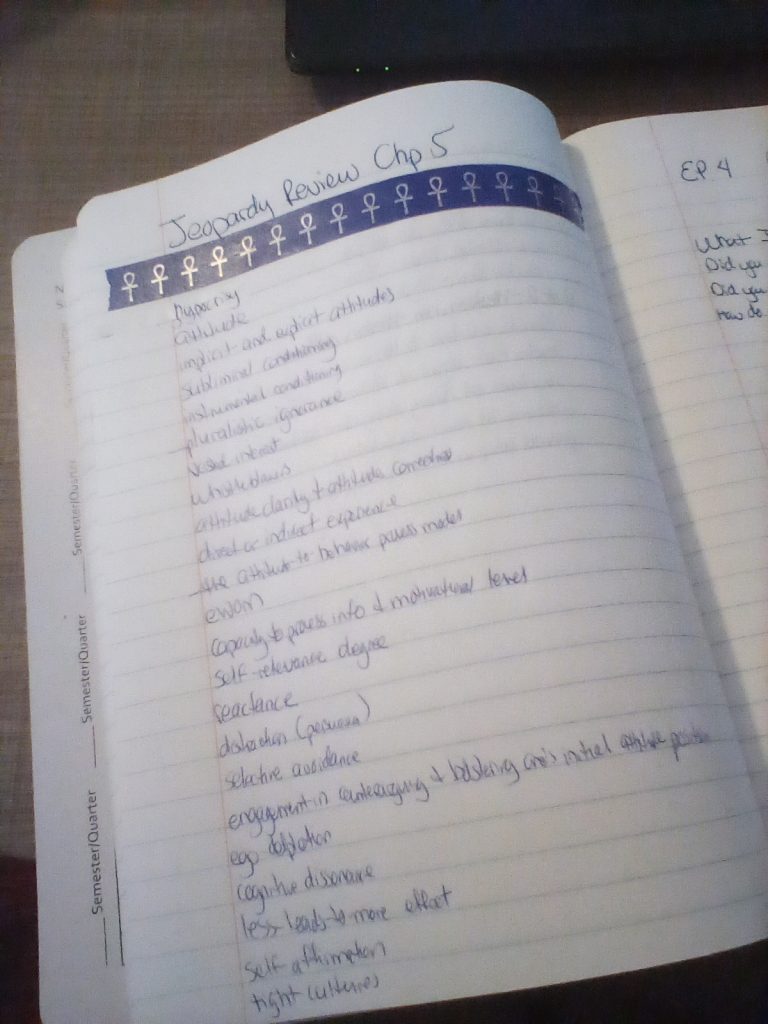 Jeopardy Review Chp 5
hypocrisy
attitude
implicit and explicit attitudes
subliminal conditioning
instrumental conditioning
pluralistic ignorance
vested interest
whistleblowers
attitude clarity + attitude correctness
direct or indirect experience
the attitude-to-behavior process model
eWOM
capacity to process info & motivational level
self-relevance degree
reactance
distraction (persuasion)
selective avoidance
engagement in counterarguing & bolstering one's initial attitude position
ego depletion
cognitive dissonance
less-leads-to more effect
self affirmation
tight cultures
EP 4
What I
Did you
Did you
how do
Semester/Quarter
Semester/Quarter
Semester/Quarter